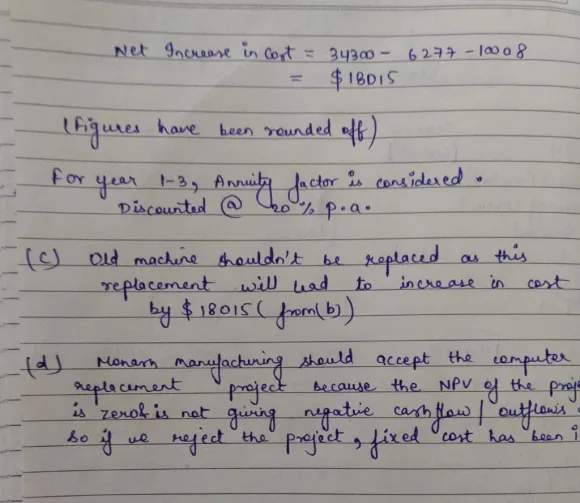 Net Increase in Cost = 34300 - 6277 - 10008
= $18015
(Figures have been rounded off)
For year 1-3, Annuity factor is considered.
Discounted @ 20% p.a.
(c) Old machine shouldn't be replaced as this
replacement will lead to increase in cost
by $18015 (from (b))
(d) Monarn manufacturing should accept the computer
replacement project because the NPV of the proje
is zero & is not giving negative cashflow / outflow is
So if we reject the project, fixed cost has been i